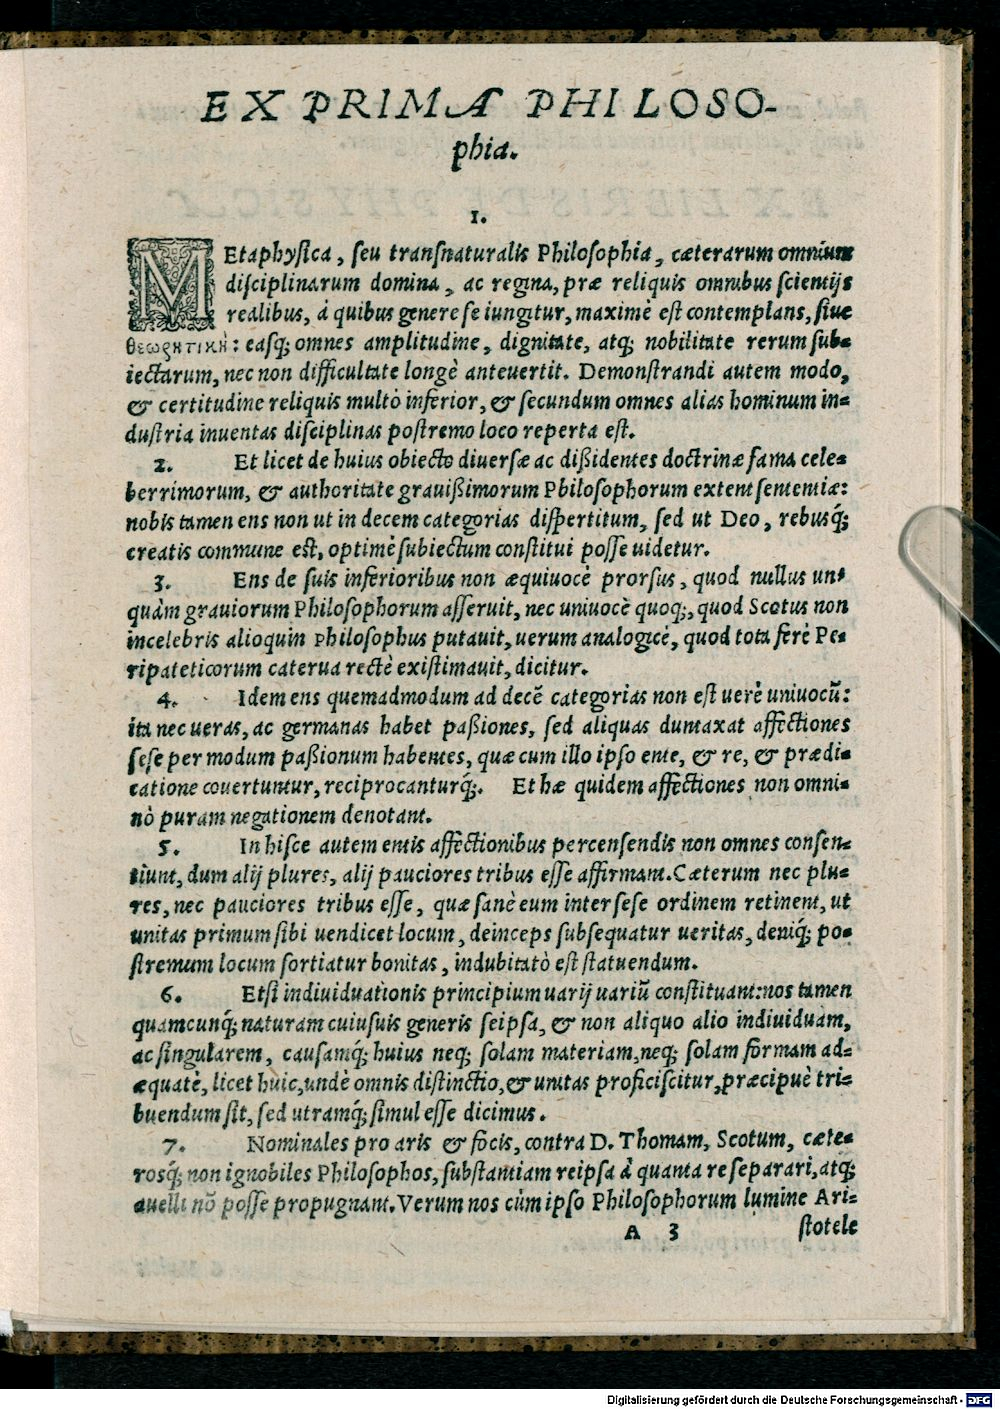 EX PRIMA PHILOSO-
phia.
1.
MEtaphysica, seu transnaturalis Philosophia, cæterarum omnium
disciplinarum domina, ac regina, præ reliquis omnibus scientijs
realibus, à quibus genere se iungitur, maximè est contemplans, siue
θεωρητική: easq́; omnes amplitudine, dignitate, atq́; nobilitate rerum sub-
iectarum, nec non difficultate longè anteuertit. Demonstrandi autem modo,
& certitudine reliquis multò inferior, & secundum omnes alias hominum in-
dustria inuentas disciplinas postremo loco reperta est.
2. Et licet de huius obiecto diuersæ ac dißidentes doctrinæ fama cele-
berrimorum, & authoritate grauißimorum Philosophorum extent sententiæ:
nobis tamen ens non ut in decem categorias dispertitum, sed ut Deo, rebusq́;
creatis commune est, optimè subiectum constitui posse uidetur.
3. Ens de suis inferioribus non æquiuocè prorsus, quod nullus un-
quàm grauiorum Philosophorum asseruit, nec uniuocè quoq́;, quod Scotus non
incelebris alioquin Philosophus putauit, uerum analogicè, quod tota ferè Pe-
ripateticorum caterua rectè existimauit, dicitur.
4. Idem ens quemadmodum ad decē categorias non est uerè uniuocū:
ita nec ueras, ac germanas habet paßiones, sed aliquas duntaxat affectiones
sese per modum paßionum habentes, quæ cum illo ipso ente, & re, & prædi-
catione couertuntur, reciprocanturq́;. Et hæ quidem affectiones non omni-
nò puram negationem denotant.
5. In hisce autem entis affectionibus percensendis non omnes consen-
tiunt, dum alij plures, alij pauciores tribus esse affirmant. Cæterum nec plu-
res, nec pauciores tribus esse, quæ sanè eum inter sese ordinem retinent, ut
unitas primum sibi uendicet locum, deinceps subsequatur ueritas, deniq́; po-
stremum locum sortiatur bonitas, indubitatò est statuendum.
6. Etsi indiuiduationis principium uarij uariū constituant: nos tamen
quamcunq́; naturam cuiusuis generis seipsa, & non aliquo alio indiuiduam,
ac singularem, causamq́; huius neq́; solam materiam, neq́; solam formam ad-
æquatè, licet huic, undè omnis distinctio, & unitas proficiscitur, præcipuè tri-
buendum sit, sed utramq́; simul esse dicimus.
7. Nominales pro aris & focis, contra D. Thomam, Scotum, cæte-
rosq́; non ignobiles Philosophos, substantiam reipsa à quanta re separari, atq́;
auelli nō posse propugnant. Verum nos cùm ipso Philosophorum lumine Ari-
A 3 stotele
Digitalisierung gefördert durch die Deutsche Forschungsgemeinschaft - DFG